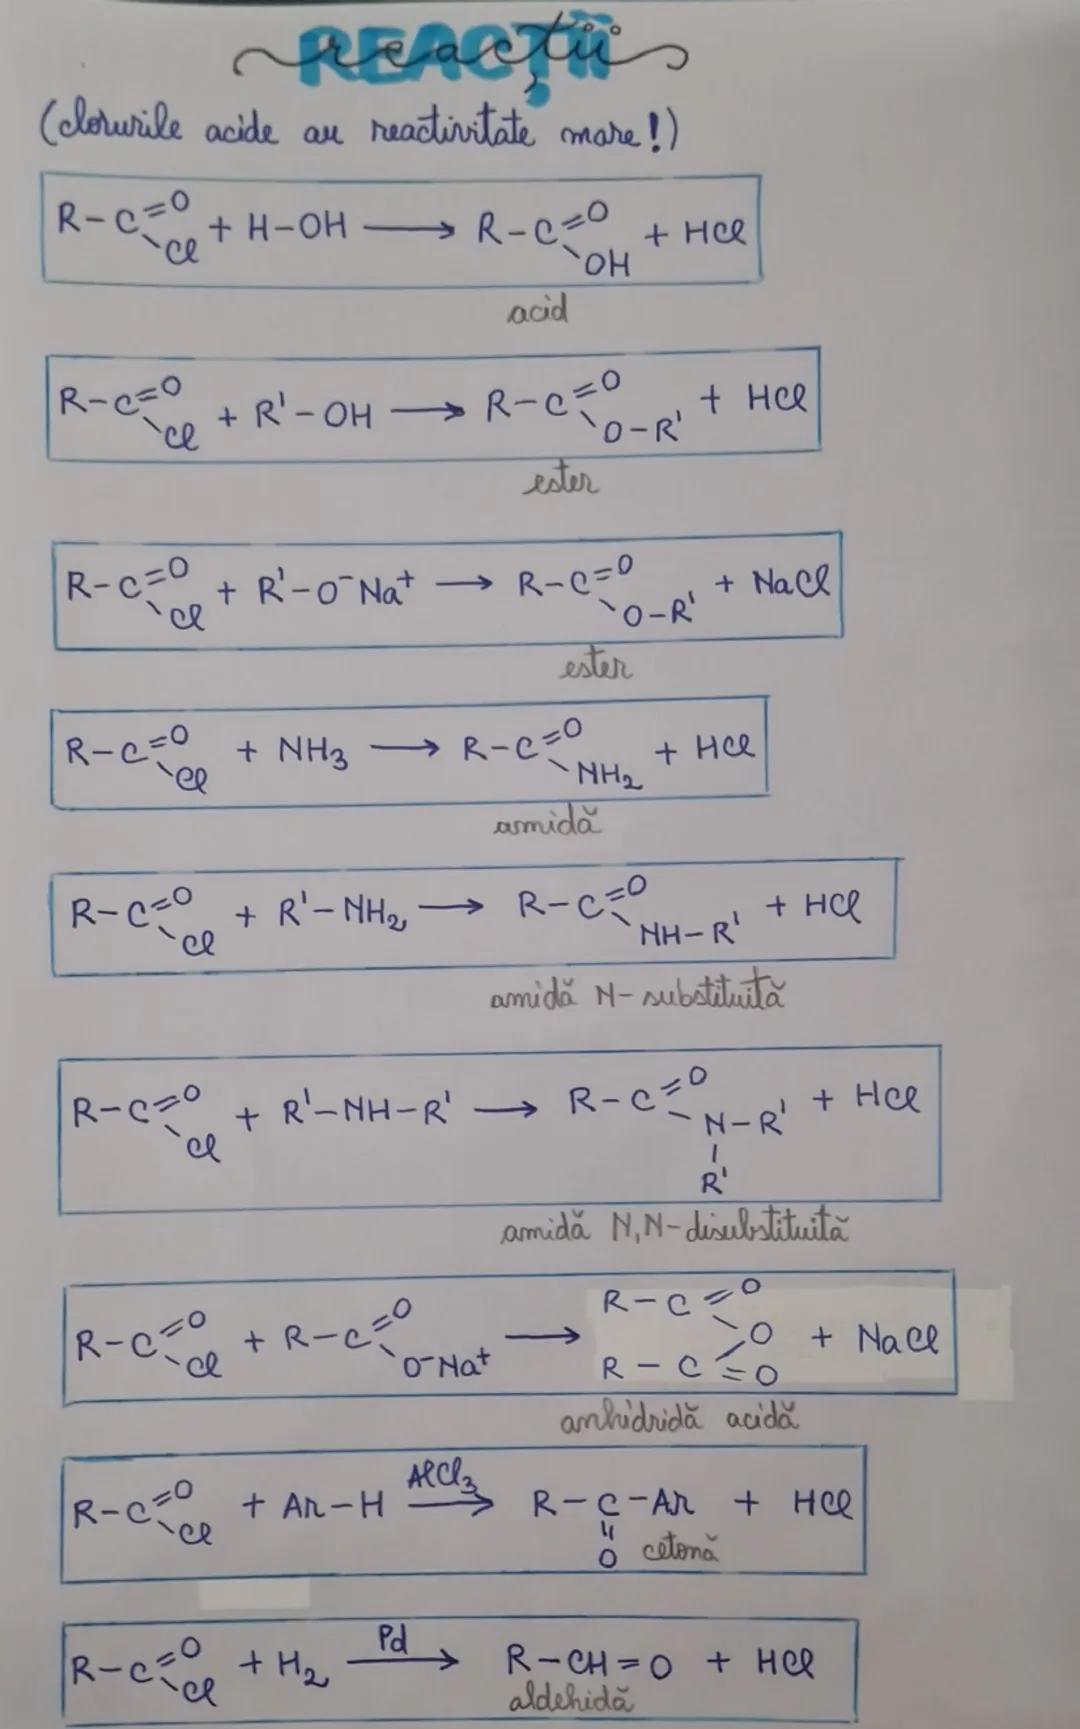 REACȚII
reacții
(clorurile acide au reactivitate mare!)
R-C=O -Cl + H-OH ⟶ R-C=O -OH + HCl
acid
R-C=O -Cl + R'-OH ⟶ R-C=O -O-R' + HCl
ester
R-C=O -Cl + R'-O⁻Na⁺ ⟶ R-C=O -O-R' + NaCl
ester
R-C=O -Cl + NH₃ ⟶ R-C=O -NH₂ + HCl
amidă
R-C=O -Cl + R'-NH₂ ⟶ R-C=O -NH-R' + HCl
amidă N-substituită
R-C=O -Cl + R'-NH-R' ⟶ R-C=O -N-R' -R' + HCl
amidă N,N-disubstituită
R-C=O -Cl + R-C=O -O⁻Na⁺ ⟶ R-C=O -O- R-C=O + NaCl
anhidridă acidă
R-C=O -Cl + Ar-H AlCl₃ ⟶ R-C-Ar =O + HCl
cetonă
R-C=O -Cl + H₂ Pd ⟶ R-CH=O + HCl
aldehidă